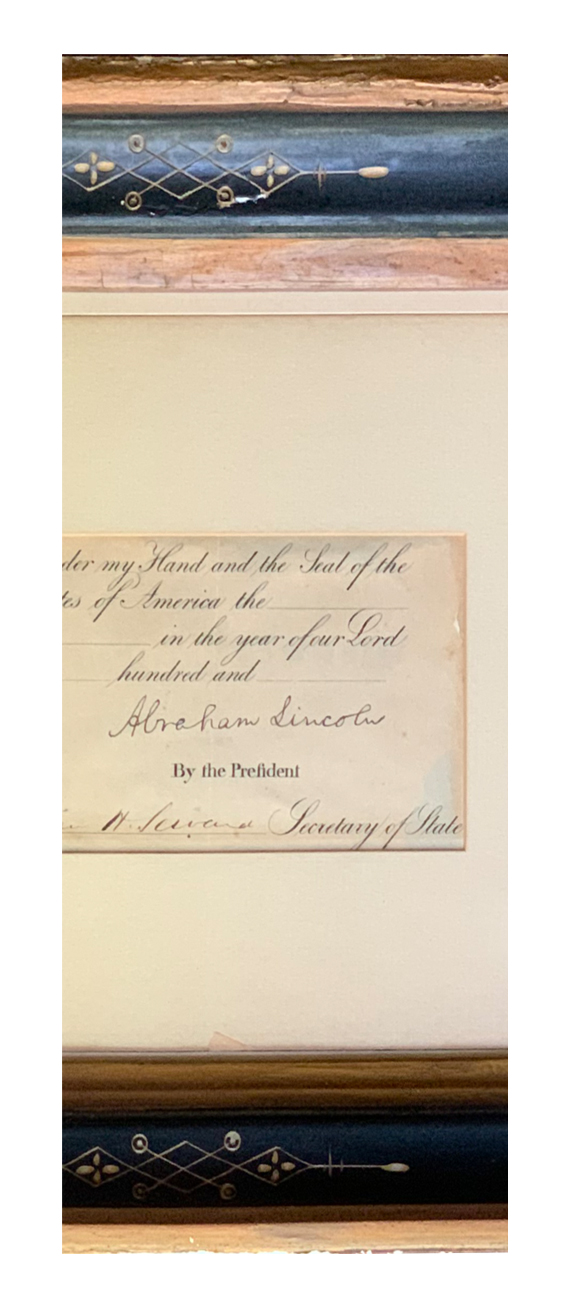 der my Hand and the Seal of the
tes of America the
in the year of our Lord
hundred and
Abraham Lincoln
By the Preſident
H. Seward Secretary of State